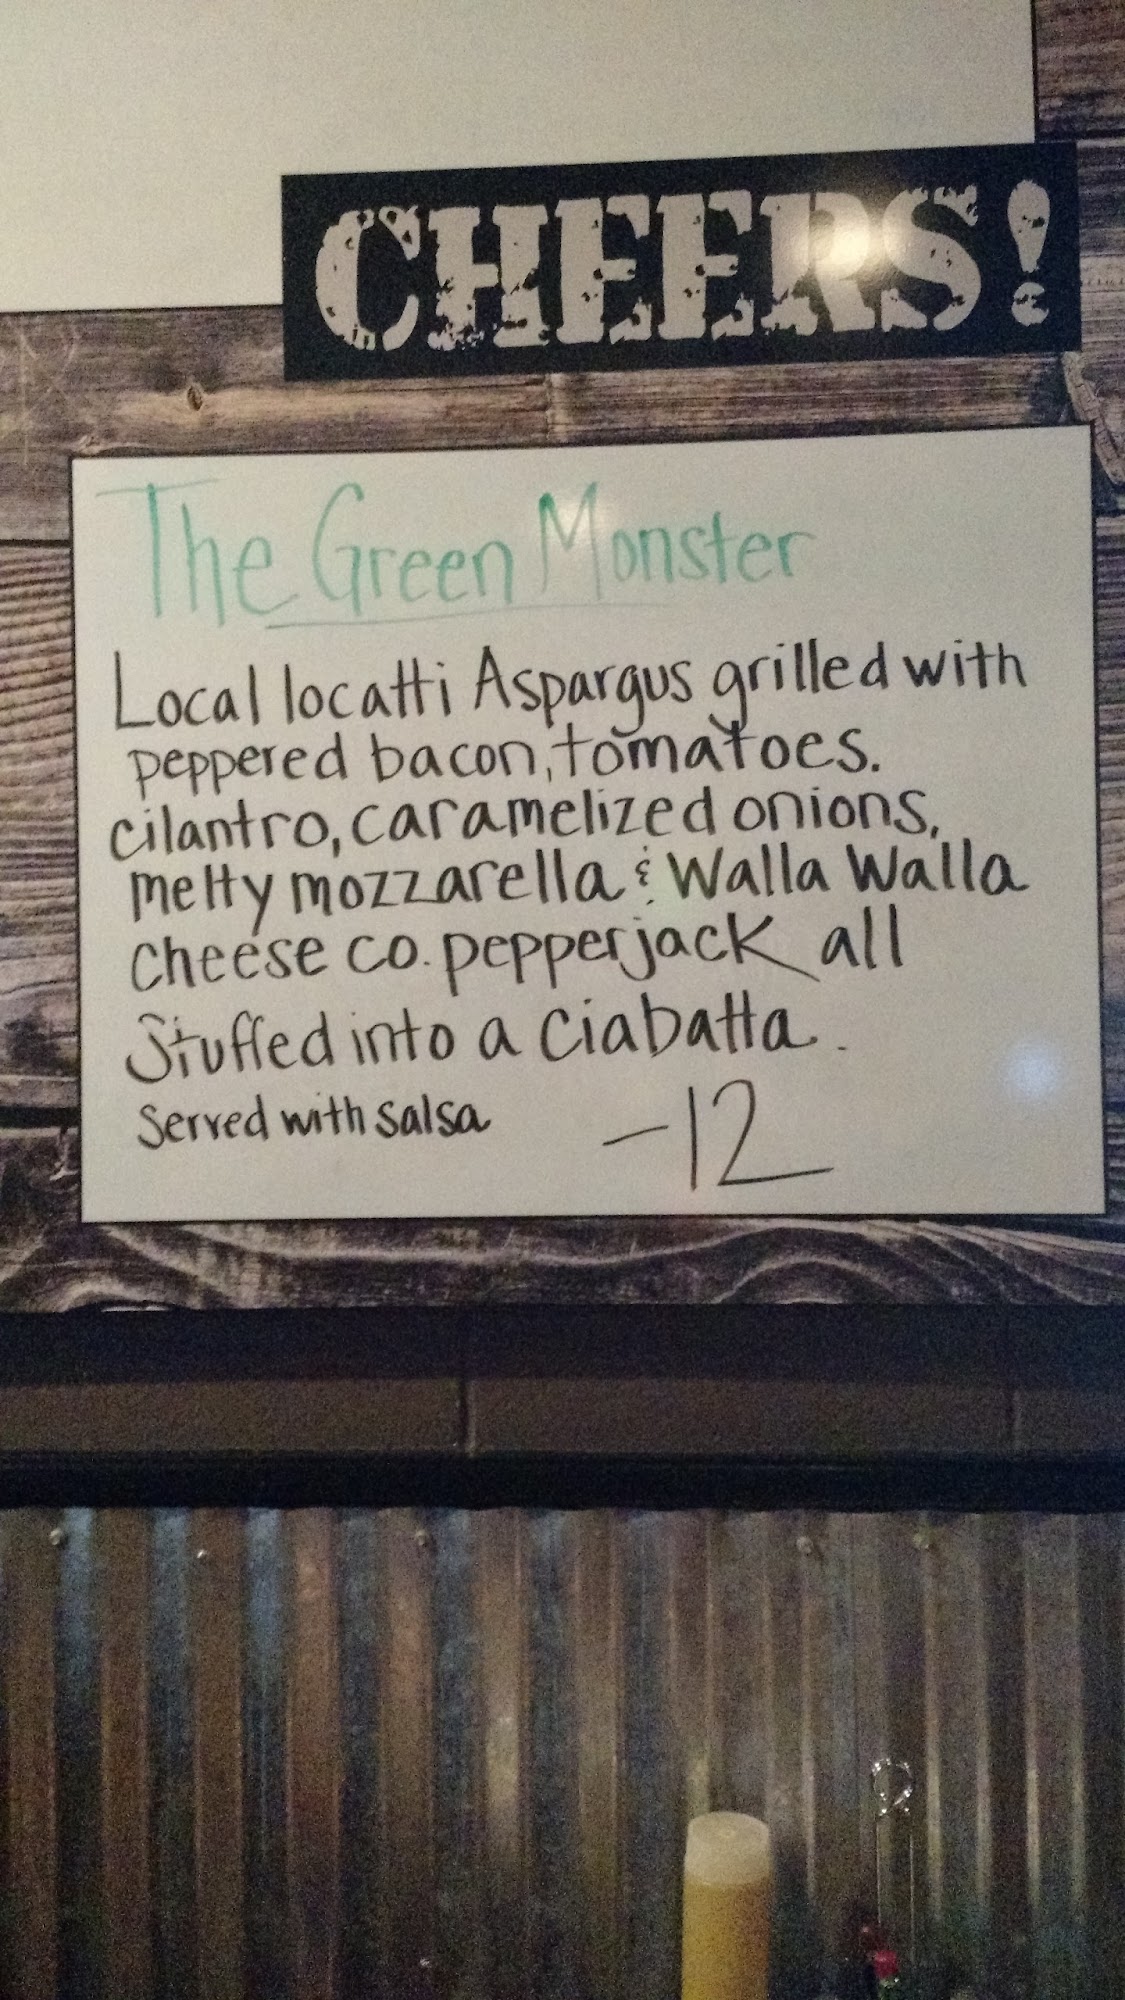 CHEERS!
The Green Monster
Local locatti Aspargus grilled with
peppered bacon, tomatoes.
cilantro, caramelized onions,
melty mozzarella & Walla Walla
cheese co. pepperjack all
Stuffed into a Ciabatta.
Served with salsa -12